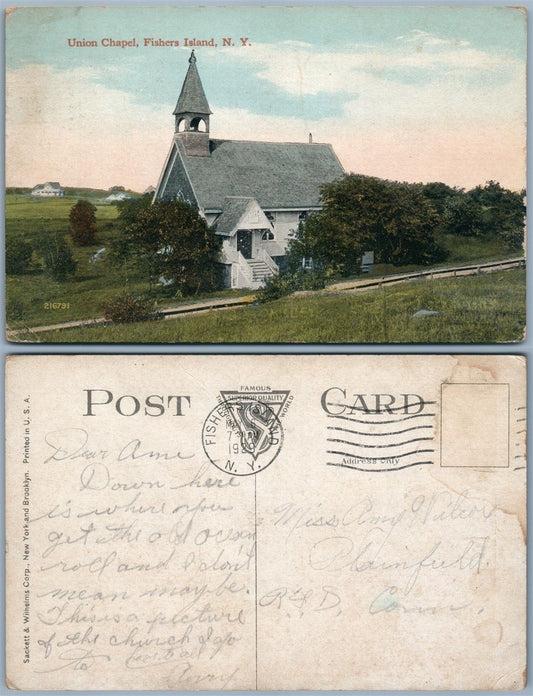 Union Chapel, Fishers Island, N. Y.
216791
POST CARD
FAMOUS
SUPERIOR QUALITY
THE WORLD
FISHERS ISLAND
7
19
N. Y.
Address Only
Sackett & Wilhelms Corp., New York and Brooklyn. Printed in U. S. A.
Dear Amy
Down here
is where you
get the old ocean
roll and I don't
mean maybe.
This is a picture
of the church I go
to
Miss Amy
Plainfield
Conn.